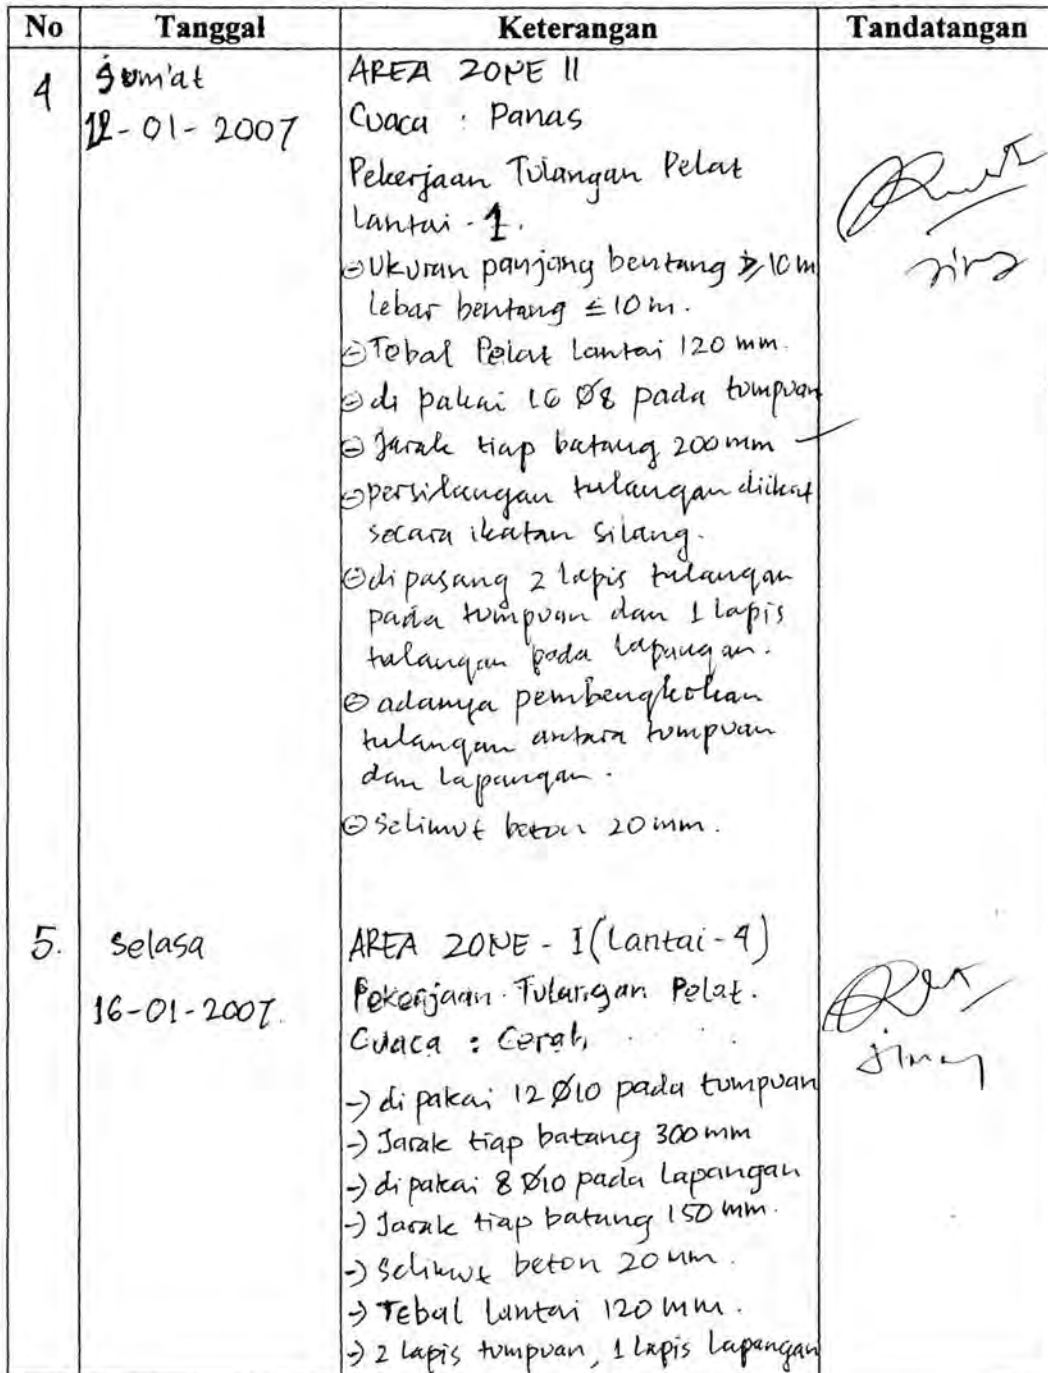 No Tanggal Keterangan Tandatangan
4 Jum'at AREA ZONE II
12-01-2007 Cuaca : Panas
Pekerjaan Tulangan Pelat
Lantai - 1.
⊖ Ukuran panjang bentang ≥ 10 m
lebar bentang ≤ 10 m.
⊖ Tebal Pelat Lantai 120 mm.
⊖ di pakai 16 Ø8 pada tumpuan
⊖ Jarak tiap batang 200 mm
⊖ persilangan tulangan diikat
secara ikatan silang.
⊖ di pasang 2 lapis tulangan
pada tumpuan dan 1 lapis
tulangan pada lapangan.
⊖ adanya pembengkokan
tulangan antara tumpuan
dan lapangan.
⊖ Selimut beton 20 mm.
5. Selasa AREA ZONE - I (Lantai - 4)
16-01-2007. Pekerjaan Tulangan Pelat.
Cuaca : Cerah
-) di pakai 12 Ø10 pada tumpuan
-) Jarak tiap batang 300 mm
-) di pakai 8 Ø10 pada Lapangan
-) Jarak tiap batang 150 mm.
-) Selimut beton 20 mm.
-) Tebal lantai 120 mm.
-) 2 lapis tumpuan, 1 lapis Lapangan